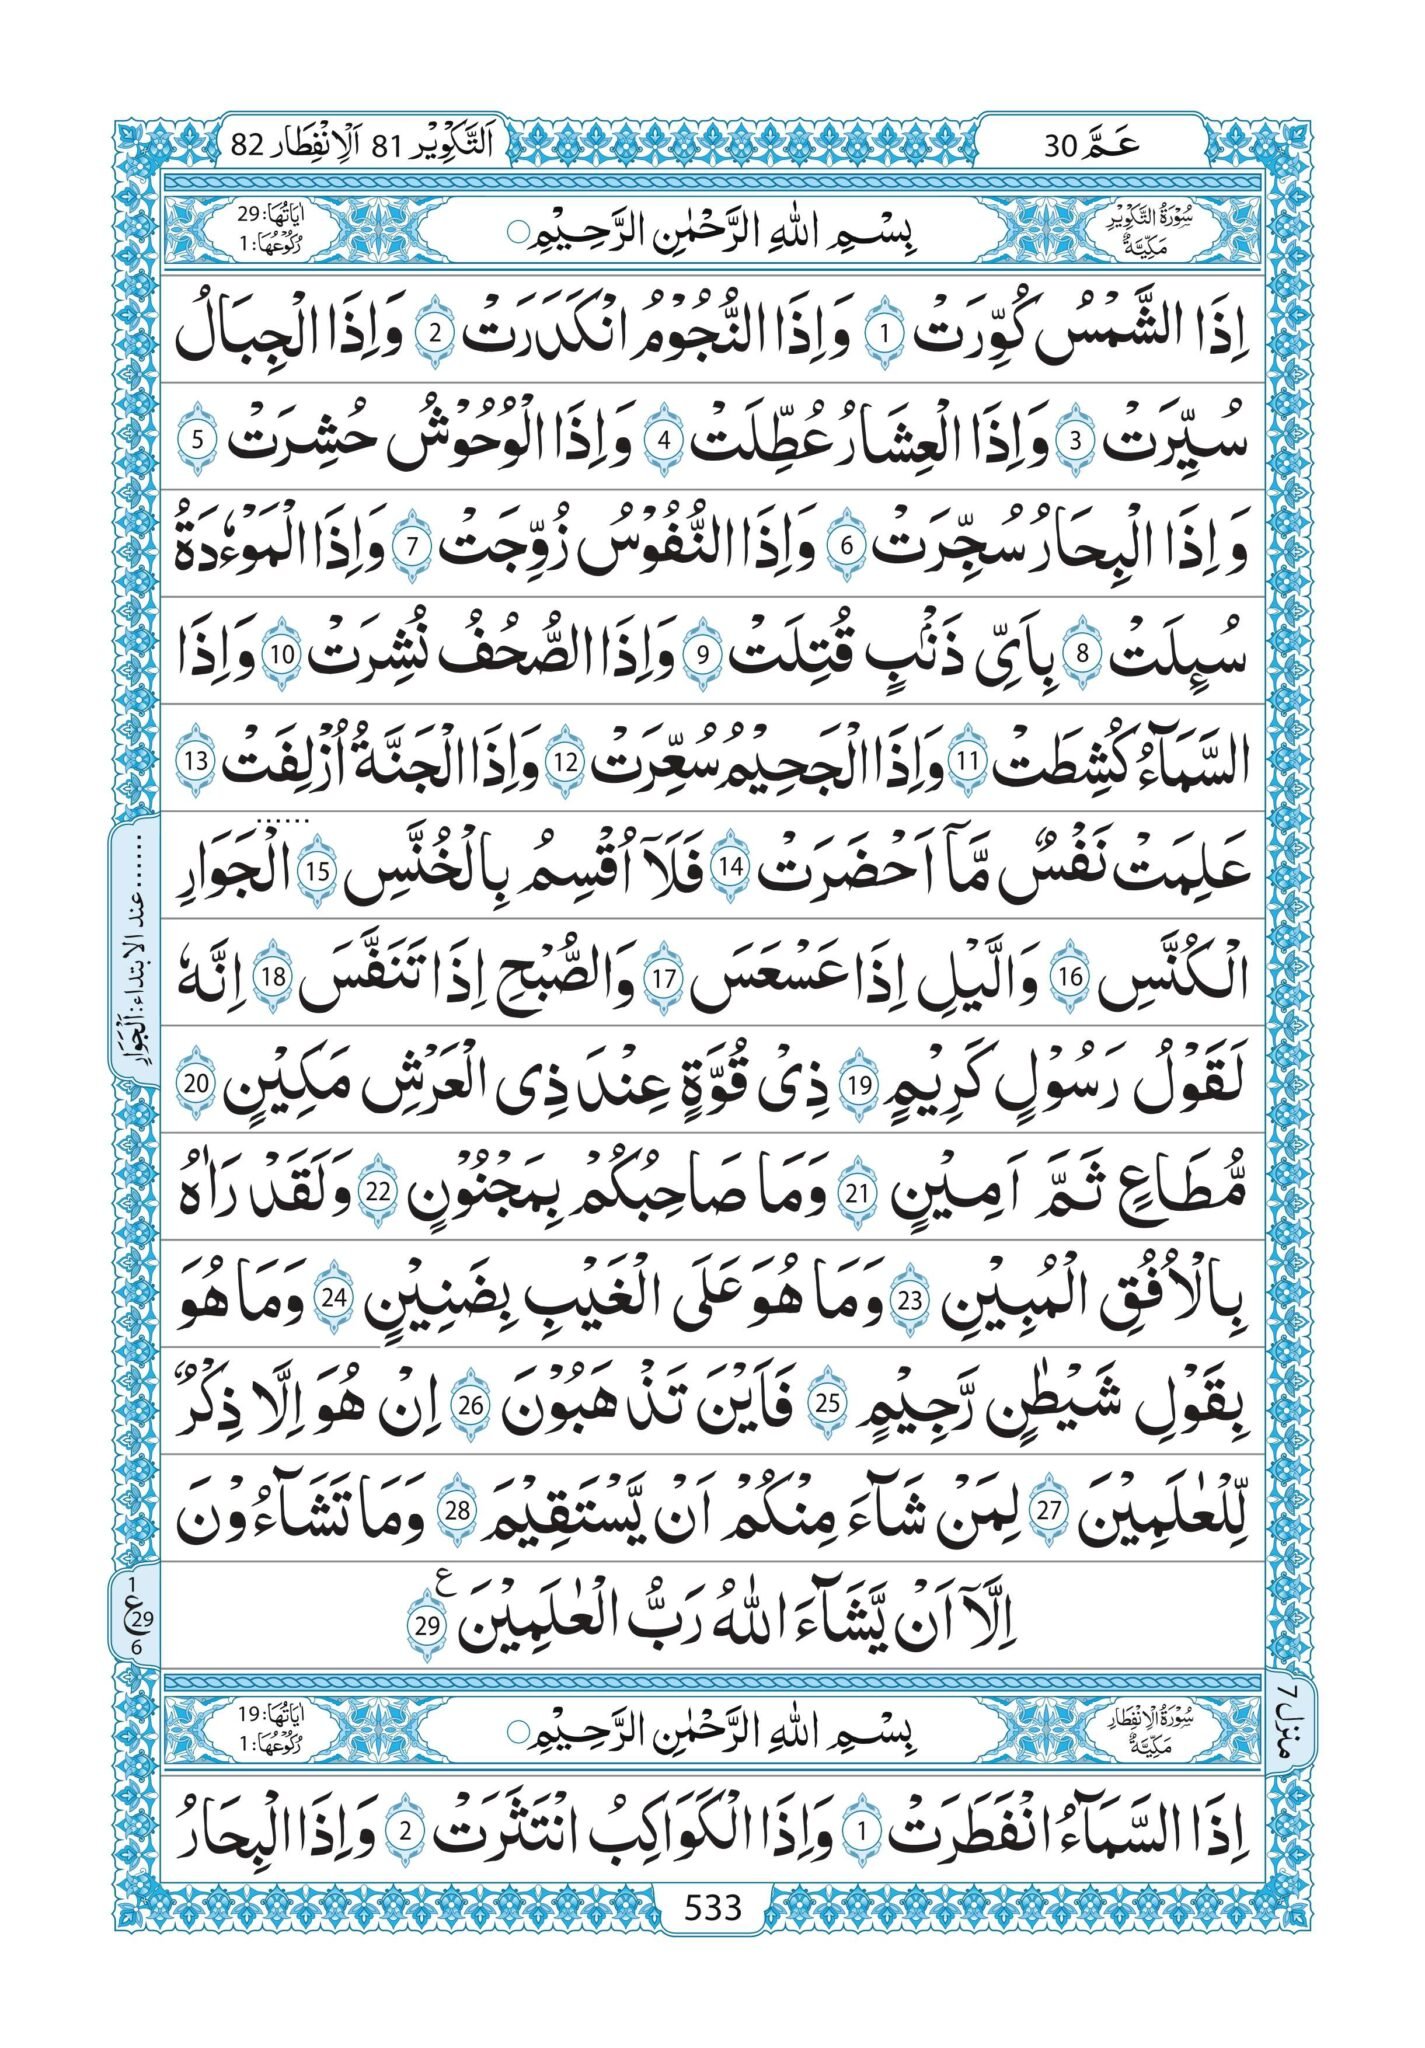 عَمَّ 30
اَلتَّكْوِيْر 81 اَلْاِنْفِطَار 82
سُوْرَةُ التَّكْوِيْرِ مَكِّيَّةٌ
بِسْمِ اللهِ الرَّحْمٰنِ الرَّحِيْمِ○
اٰيَاتُهَا: 29
رُكُوْعُهَا: 1
اِذَا الشَّمْسُ كُوِّرَتْ 1 وَاِذَا النُّجُوْمُ انْكَدَرَتْ 2 وَاِذَا الْجِبَالُ
سُيِّرَتْ 3 وَاِذَا الْعِشَارُ عُطِّلَتْ 4 وَاِذَا الْوُحُوْشُ حُشِرَتْ 5
وَاِذَا الْبِحَارُ سُجِّرَتْ 6 وَاِذَا النُّفُوْسُ زُوِّجَتْ 7 وَاِذَا الْمَوْءٗدَةُ
سُىِٕلَتْ 8 بِاَيِّ ذَنْۢبٍ قُتِلَتْ 9 وَاِذَا الصُّحُفُ نُشِرَتْ 10 وَاِذَا
السَّمَآءُ كُشِطَتْ 11 وَاِذَا الْجَحِيْمُ سُعِّرَتْ 12 وَاِذَا الْجَنَّةُ اُزْلِفَتْ 13
عَلِمَتْ نَفْسٌ مَّآ اَحْضَرَتْ 14 فَلَآ اُقْسِمُ بِالْخُنَّسِ 15 الْجَوَارِ
الْكُنَّسِ 16 وَالَّيْلِ اِذَا عَسْعَسَ 17 وَالصُّبْحِ اِذَا تَنَفَّسَ 18 اِنَّهٗ
لَقَوْلُ رَسُوْلٍ كَرِيْمٍ 19 ذِيْ قُوَّةٍ عِنْدَ ذِى الْعَرْشِ مَكِيْنٍ 20
مُّطَاعٍ ثَمَّ اَمِيْنٍ 21 وَمَا صَاحِبُكُمْ بِمَجْنُوْنٍ 22 وَلَقَدْ رَاٰهُ
بِالْاُفُقِ الْمُبِيْنِ 23 وَمَا هُوَ عَلَى الْغَيْبِ بِضَنِيْنٍ 24 وَمَا هُوَ
بِقَوْلِ شَيْطٰنٍ رَّجِيْمٍ 25 فَاَيْنَ تَذْهَبُوْنَ 26 اِنْ هُوَ اِلَّا ذِكْرٌ
لِّلْعٰلَمِيْنَ 27 لِمَنْ شَآءَ مِنْكُمْ اَنْ يَّسْتَقِيْمَ 28 وَمَا تَشَآءُوْنَ
اِلَّآ اَنْ يَّشَآءَ اللهُ رَبُّ الْعٰلَمِيْنَ 29 ع
سُوْرَةُ الْاِنْفِطَارِ مَكِّيَّةٌ
بِسْمِ اللهِ الرَّحْمٰنِ الرَّحِيْمِ○
اٰيَاتُهَا: 19
رُكُوْعُهَا: 1
اِذَا السَّمَآءُ انْفَطَرَتْ 1 وَاِذَا الْكَوَاكِبُ انْتَثَرَتْ 2 وَاِذَا الْبِحَارُ
...... عند الابتداء: اَلْجَوَارِ
1
ع 29
6
منزل 7
533